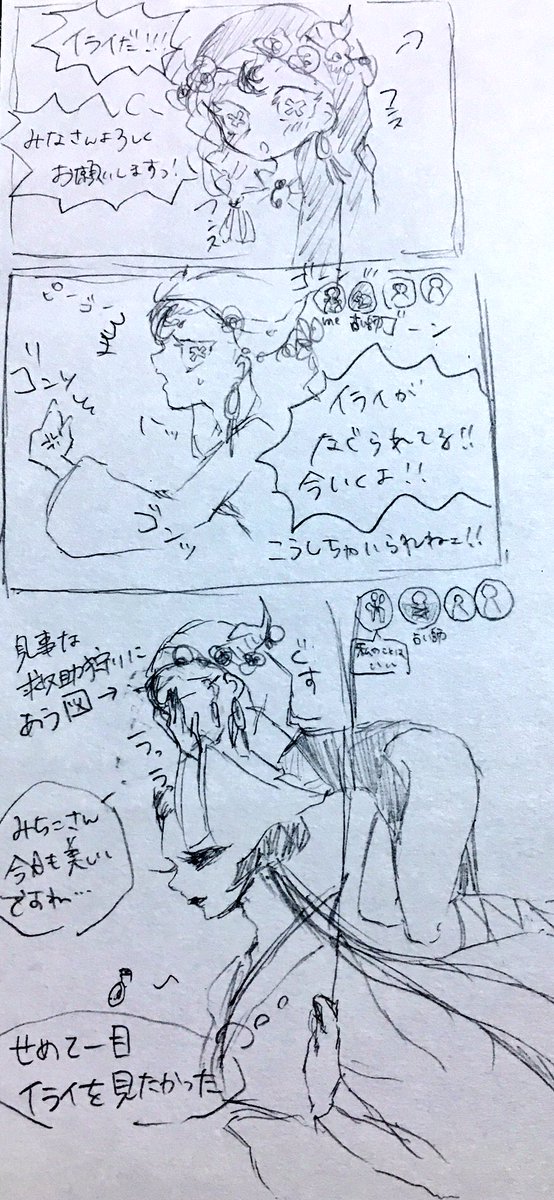 イライだ!!!
みなさんよろしく
お願いしますっ!
フンス
フンス
ピーンゴーン
ゴーン
ゴーン
me
占い師
イライが
なぐられてる!!
今いくよ!!
こうしちゃいられねェ!!
ゴンッ
ゴンッ
見事な
救助狩りに
あう図→
どす
私のことは
いい
占い師
うっ
うっ
みちこさん
今日も美しい
ですね…
せめて一目
イライを見たかった